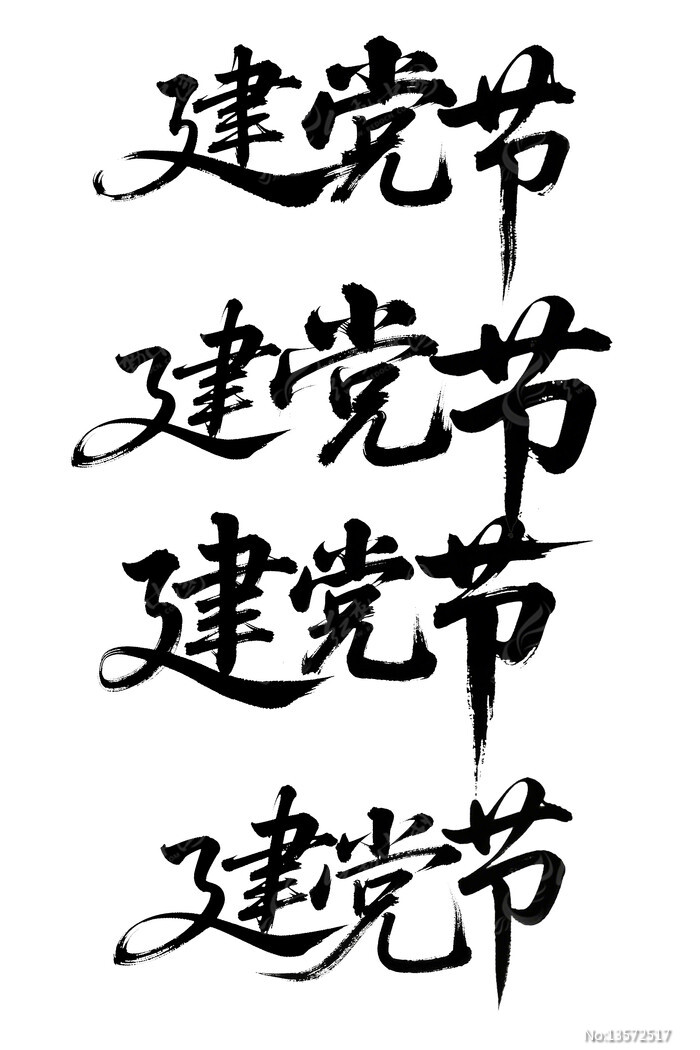 建党节
建党节
建党节
建党节
No:13572517